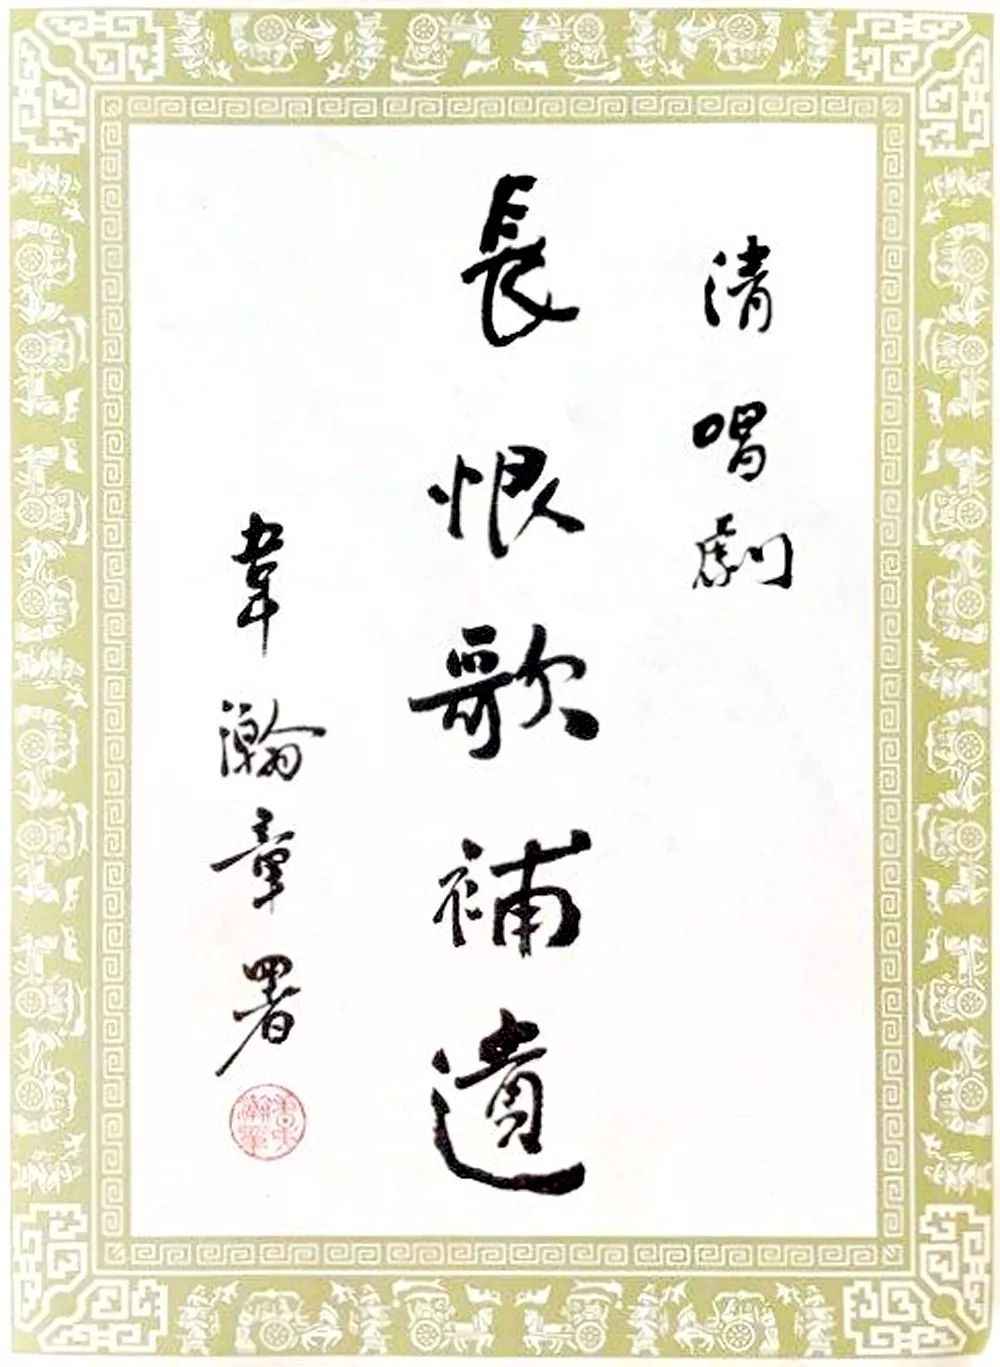 清唱劇
長恨歌補遺
韋瀚章署